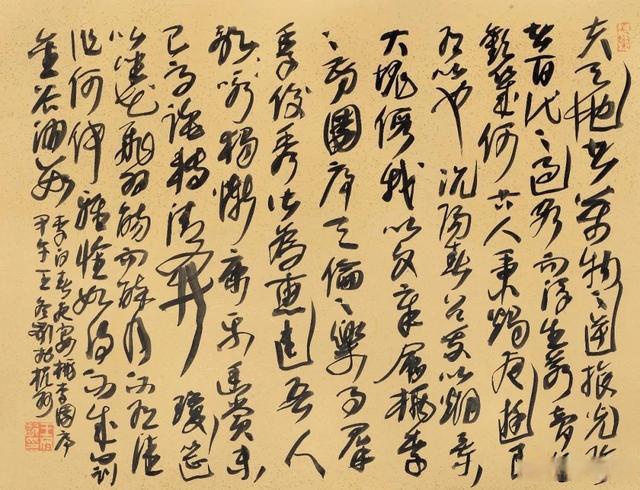 夫天地者萬物之逆旅光陰
者百代之過客而浮生若夢為
歡幾何古人秉燭夜遊良
有以也況陽春召我以煙景
大塊假我以文章會桃李
之芳園序天倫之樂事群
季俊秀皆為惠連吾人
詠歌獨慚康樂幽賞未
已高談轉清開瓊筵
以坐花飛羽觴而醉月不有佳
作何伸雅懷如詩不成罰
金谷酒數
李白春夜宴桃李園序
甲午王冬齡於杭州